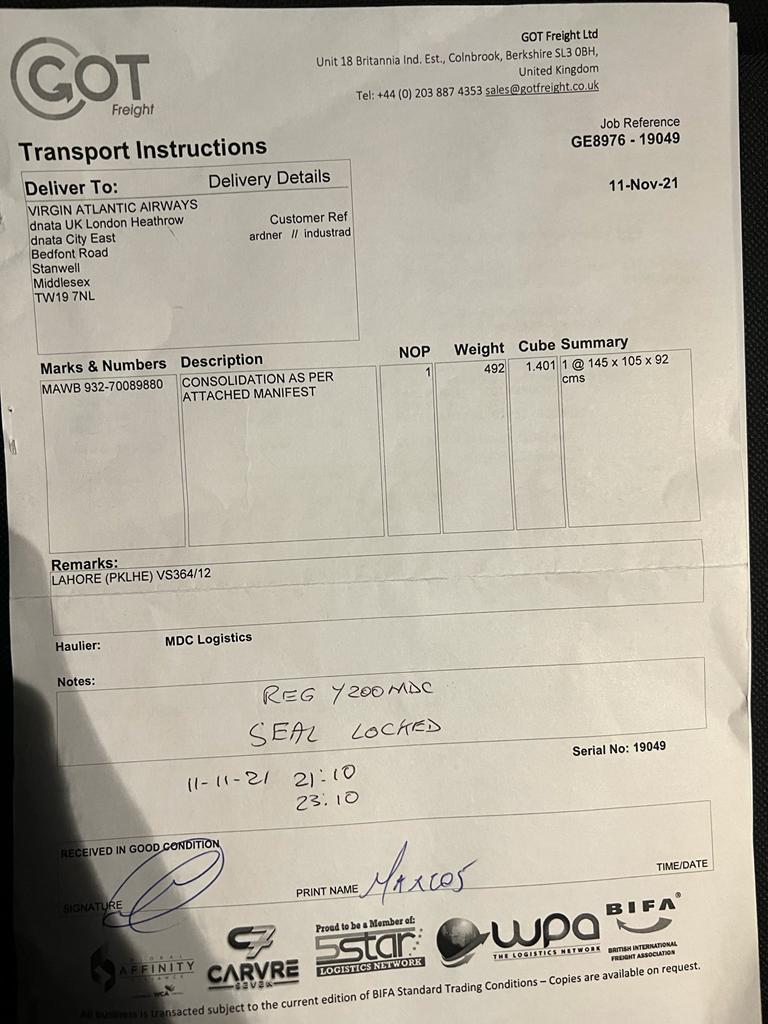 GOT
Freight
GOT Freight Ltd
Unit 18 Britannia Ind. Est., Colnbrook, Berkshire SL3 0BH,
United Kingdom
Tel: +44 (0) 203 887 4353 sales@gotfreight.co.uk
Job Reference
GE8976 - 19049
11-Nov-21
Transport Instructions
Deliver To: Delivery Details
VIRGIN ATLANTIC AIRWAYS
dnata UK London Heathrow
dnata City East
Bedfont Road
Stanwell
Middlesex
TW19 7NL
Customer Ref
ardner // industrad
Marks & Numbers Description NOP Weight Cube Summary
MAWB 932-70089880 CONSOLIDATION AS PER 1 492 1.401 1 @ 145 x 105 x 92
ATTACHED MANIFEST cms
Remarks:
LAHORE (PKLHE) VS364/12
Haulier: MDC Logistics
Notes:
REG Y200MDC
SEAL LOCKED
Serial No: 19049
11-11-21 21:10
23:10
RECEIVED IN GOOD CONDITION
SIGNATURE PRINT NAME MARCOS TIME/DATE
GLOBAL
AFFINITY
ALLIANCE
WCA
C7
CARVRE
SEVEN
Proud to be a Member of:
5star
LOGISTICS NETWORK
wpa
THE LOGISTICS NETWORK
BIFA®
BRITISH INTERNATIONAL
FREIGHT ASSOCIATION
All business is transacted subject to the current edition of BIFA Standard Trading Conditions – Copies are available on request.